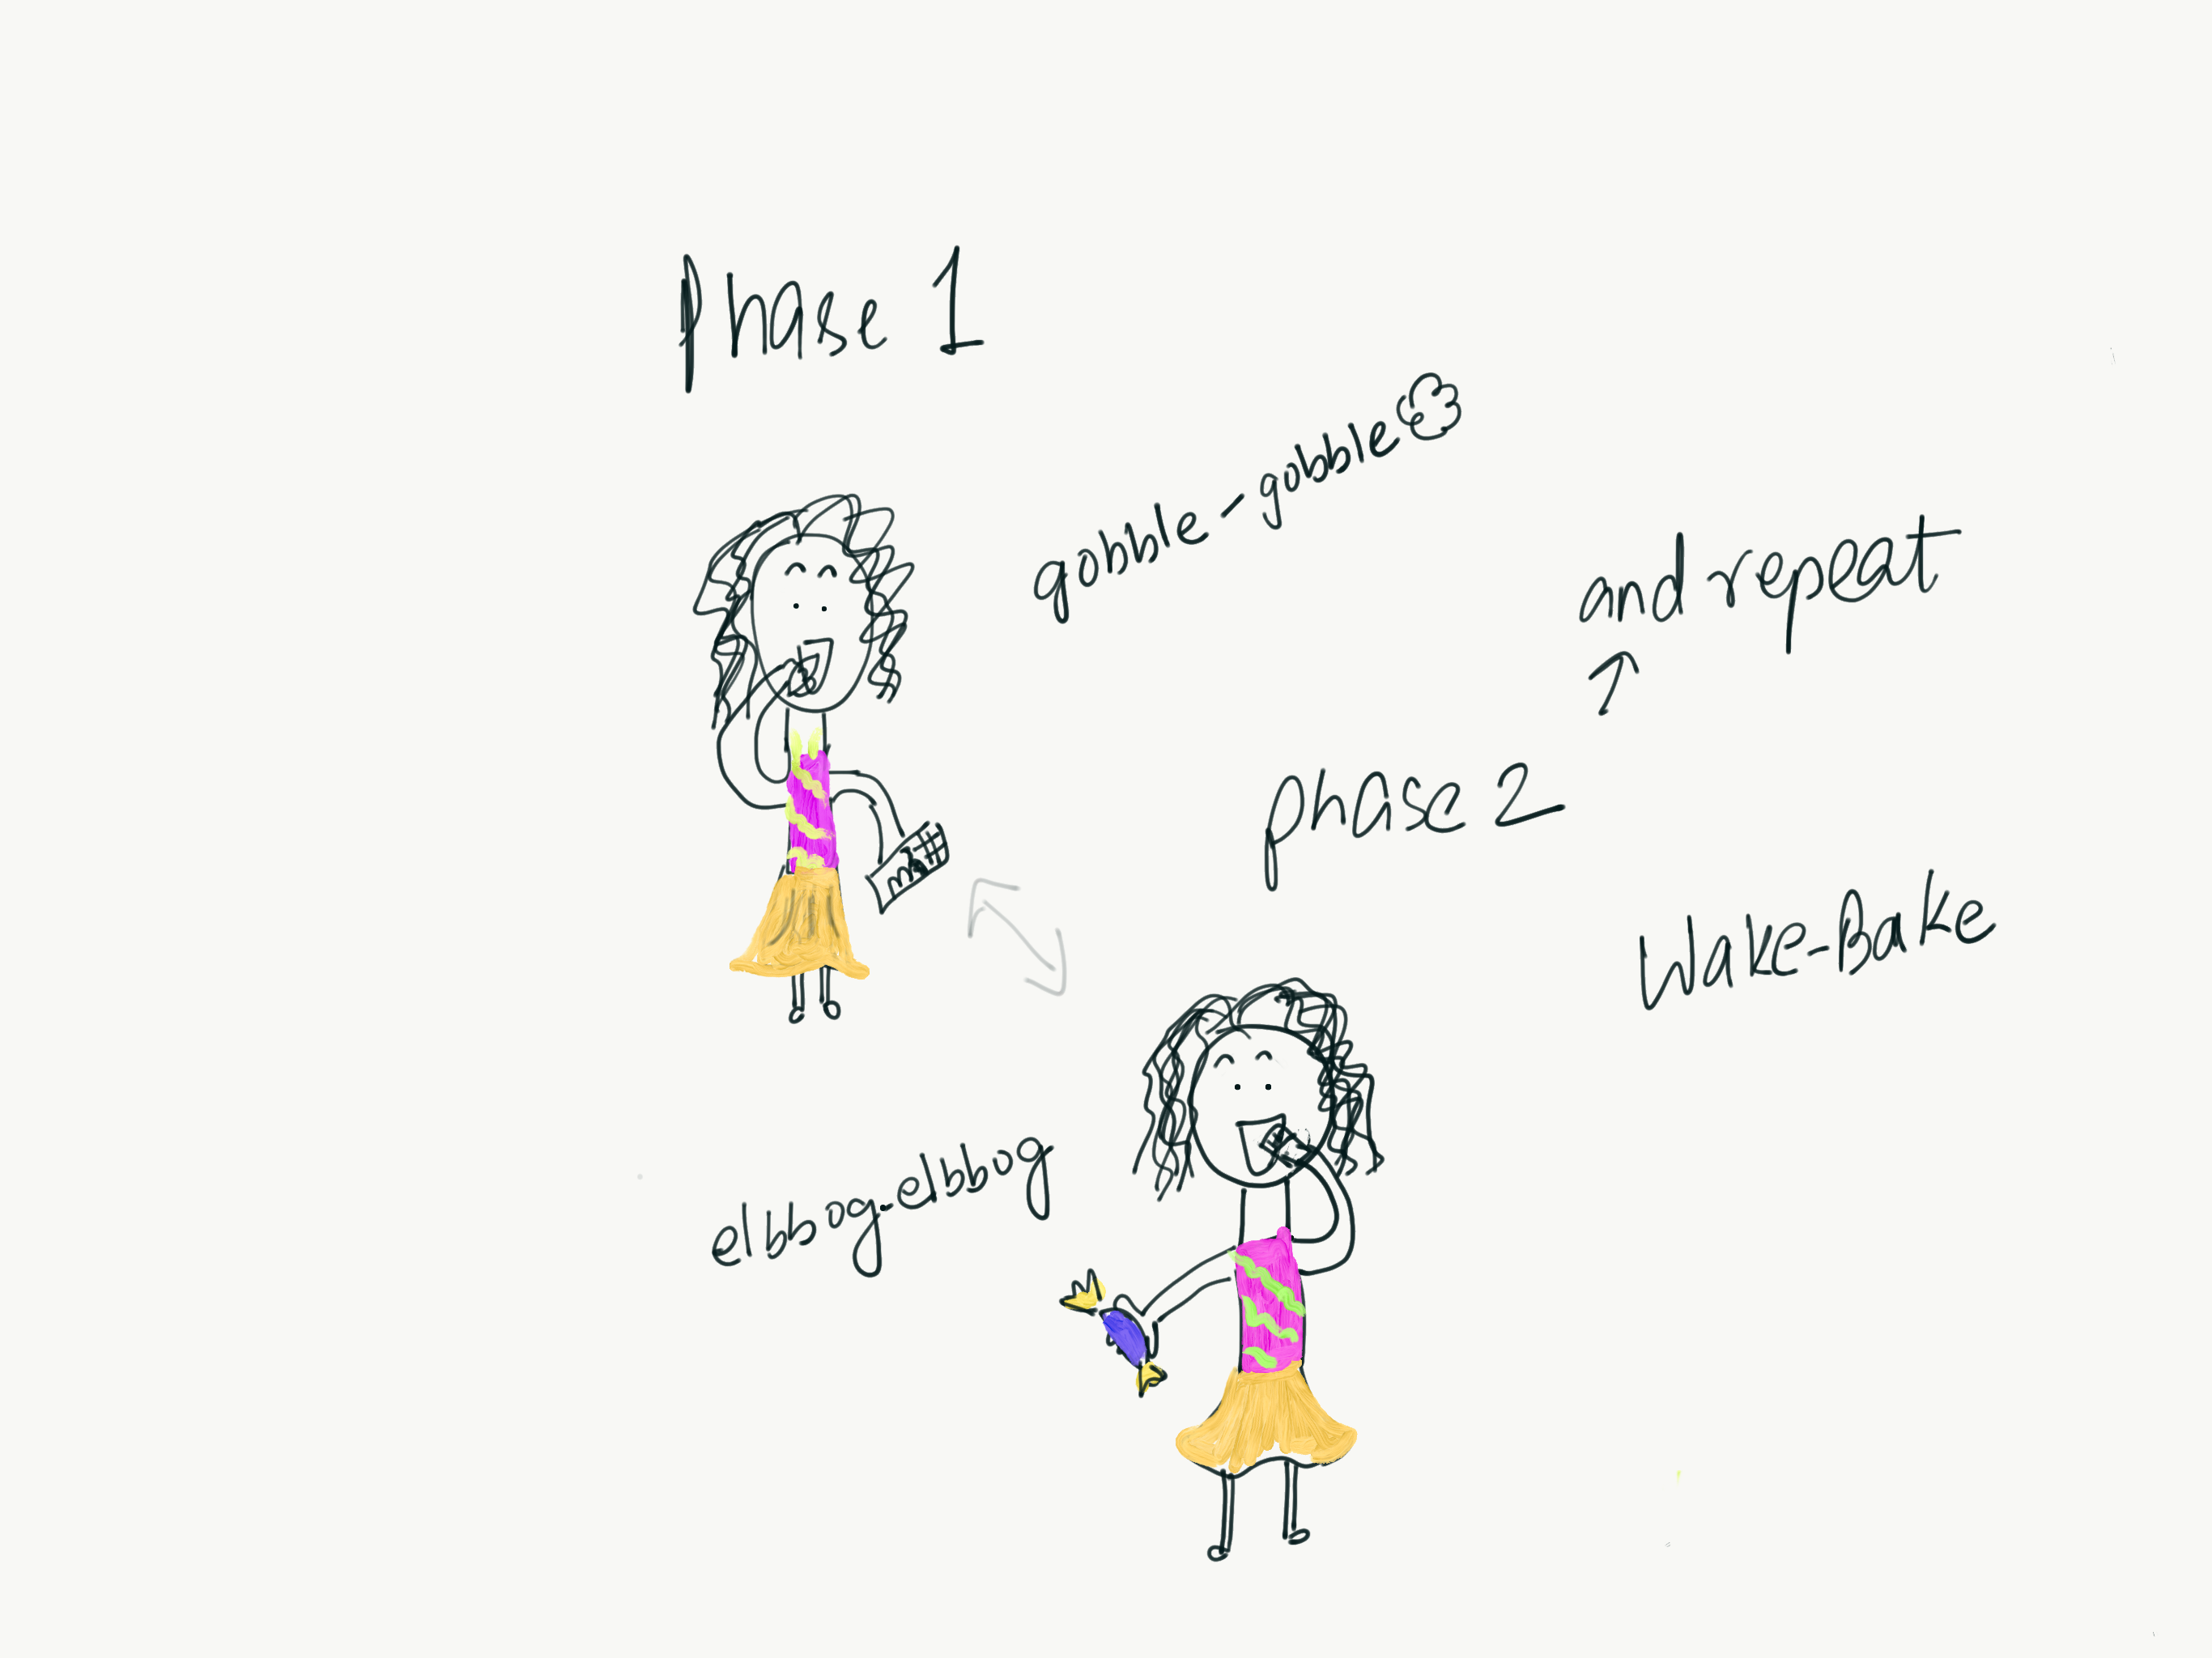 Phase 1
gobble-gobble
and repeat
phase 2
Wake-Bake
elbbog-elbbog